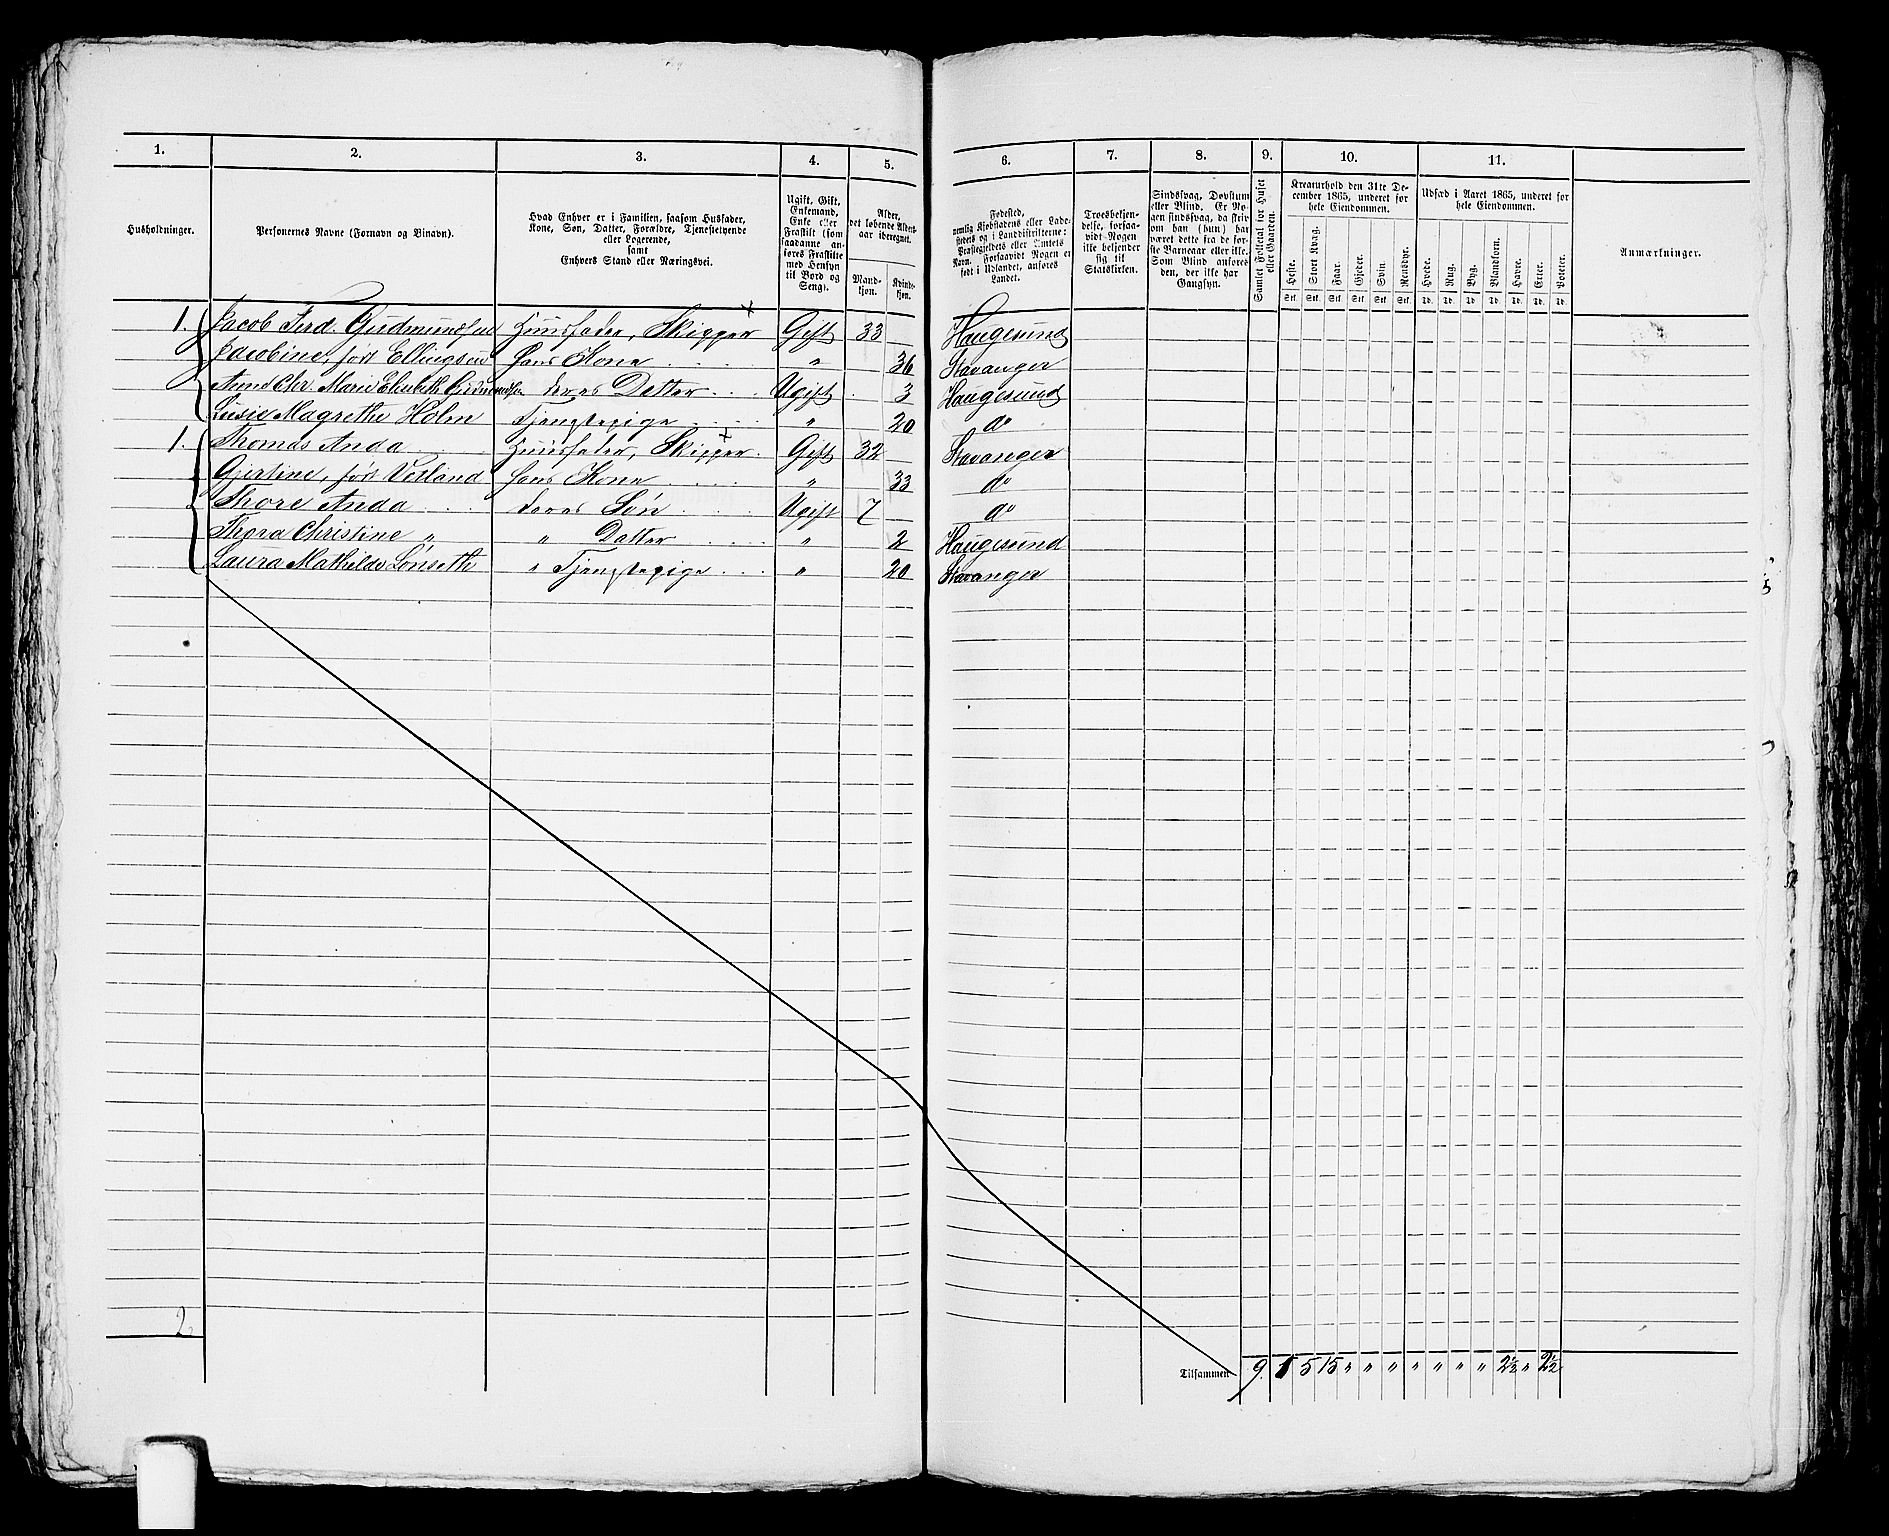 1. 2. 3. 4. 5. 6. 7. 8. 9. 10. 11.
Husholdninger.
Personernes Navne (Fornavn og Binavn).
Hvad Enhver er i Familien, saasom Husfader,
Kone, Søn, Datter, Forældre, Tjenestetyende
eller Logerende,
samt
Enhvers Stand eller Næringsvei.
Ugift, Gift,
Enkemand,
Enke eller
Fraskilt (som
saadanne an-
føres Fraskilte
med Hensyn
til Bord og
Seng).
Alder,
det løbende Alders-
aar iberegnet.
Mand-
kjøn.
Kvind-
kjøn.
Fødested,
nemlig Kjøbstadens eller Lade-
stedets og i Landdistrikterne:
Præstegjeldets eller Amtets
Navn. Forsaavidt Nogen er
født i Udlandet, anføres
Landet.
Troesbekjen-
delse, forsaa-
vidt Nogen
ikke bekjender
sig til
Statskirken.
Sindssvag, Døvstum
eller Blind. Er No-
gen sindssvag, da skriv
om han (hun) har
været dette fra de før-
ste Barneaar eller ikke.
Som Blind ansøres
den, der ikke har
Gangsyn.
Samlet Folketal for Huset
eller Gaarden.
Kreaturhold den 31te De-
cember 1865, underet for
hele Eiendommen.
Heste. Stort Kvæg. Faar. Gjeder. Svin. Rensdyr.
Stk. Stk. Stk. Stk. Stk. Stk.
Udsæd i Aaret 1865, underet for
hele Eiendommen.
Hvede. Rug. Byg. Blandkorn. Havre. Erter. Poteter.
Td. Td. Td. Td. Td. Td. Td.
Anmærkninger.
1. Jacob Ferd. Gudmundsen Huusfader, Skipper Gift 33 Haugesund
Jacobine, født Ellingsen Hans Kone " 36 Stavanger
Anne Chr. Marie Elisabeth Gudmundsen deres Datter Ugift 3 Haugesund
Lusie Magrethe Holm Tjenstepige " 20 do
1. Thomas Anda Huusfader, Skipper Gift 32 Stavanger
Gjertine, født Vetland hans Kone " 33 do
Thore Anda deres Søn Ugift 7 do
Thora Christine " " Datter " 2 Haugesund
Laura Mathilde Lønseth " Tjenstepige " 20 Stavanger
2
Tilsammen 9. 1 5 15 " " " " " " " 2½ " 2½